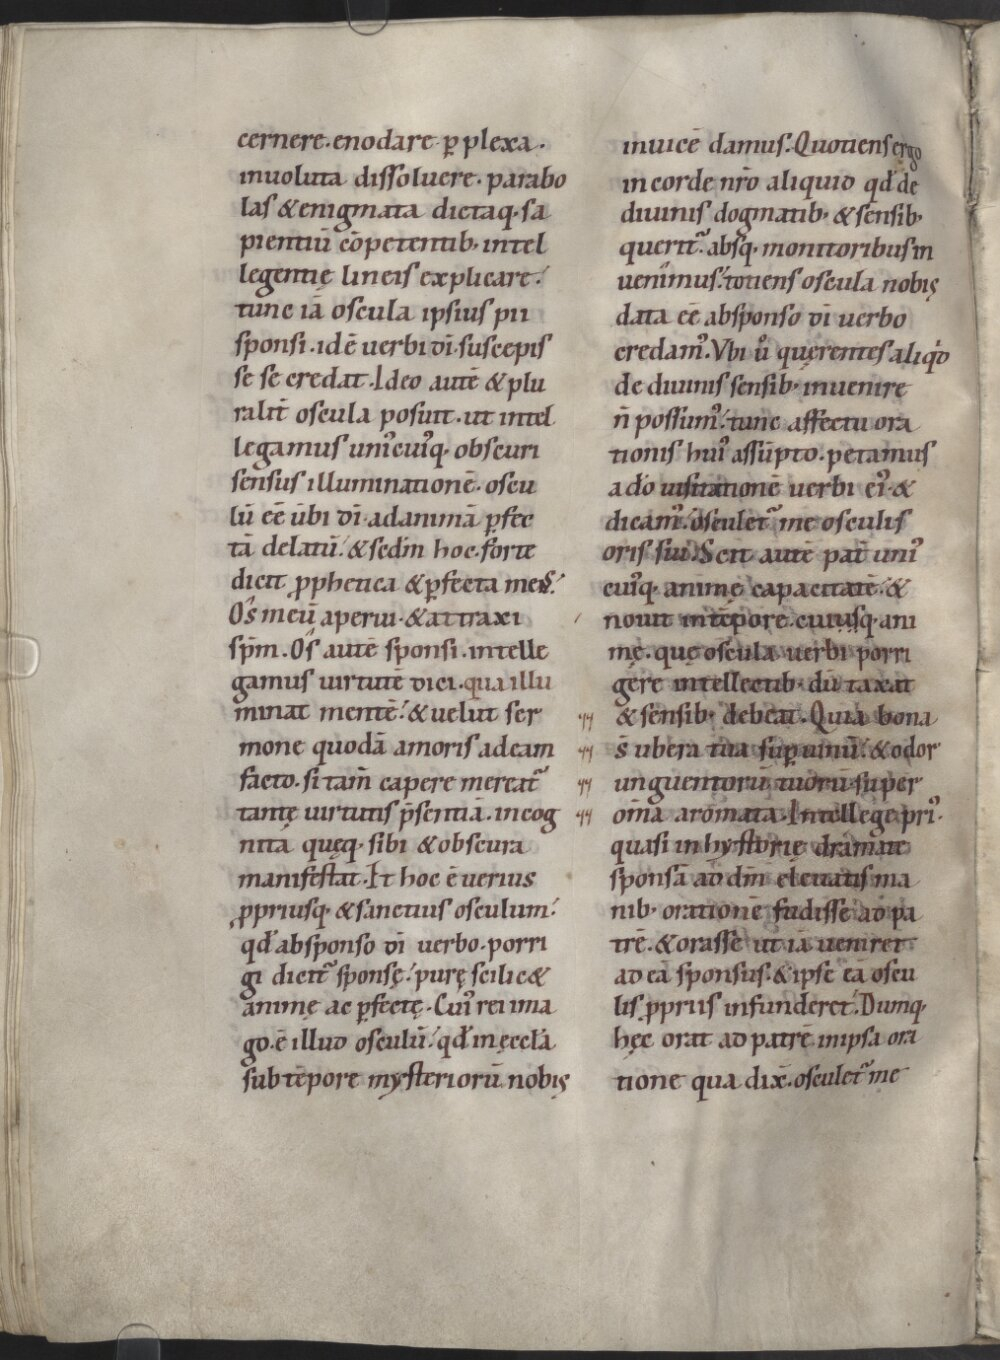 cernere·enodare p̲plexa·
inuoluta dissoluere·parabo
las &enigmata dictaq·sa
pientiū cōpetentib·intel
legentię lineis explicare:́
tunc iā oscula ipsius pii
sponsi·idē uerbi dī·suscepis
se se credat·Ideo autē &plu
ralit̄ oscula posuit·ut intel
legamus uni᾿cui᾿q·obscuri
sensus illuminationē·oscu
lū eē ūbi dī·adanimā p̲fec
tā delatū:́&sedm̄ hoc·forte
dicit ꝓphetica &p̲fecta mens:́
Os meū aperui·&attraxi
sp̄m·Os autē sponsi·intelle
gamus uirtutē dici·qua illu
minat mentē:́&uelut ser
mone quodā amoris adeam
facto·si tam̄ capere meret᾿
tantę uirtutis p̄sentiā·incog
nita quęq·sibi &obscura
manifestat·It hoc ē uerius
ꝓpriusq·&sanctius osculum:́
qd̄ absponso dī uerbo·porri
gi dicit᾿ sponsę:́purę scilic&
animę ac p̲fectę·Cui᾿ rei ima
go·ē illud osculū:́qd̄ inęccla
sub tēpore mysteriorū nobis
inuicē damus:́Quotiens ergo
incorde nr̄o aliquid qd̄ de
diuinis dogmatib·&sensib·
querit᾿:́absq·monitoribus in
uenimus:́totiens oscula nobis
data eē absponso dī uerbo
credam᾿·Vbi ū quęrentes aliqd́
de diuinis sensib·inuenire
n̄ possum᾿:́tunc affectu ora
tionis hui᾿ assūpto·petamus
ado uisitationē uerbi ei᾿·&
dicam᾿:́osculet᾿ me osculis
oris sui·Scit autē pat̄ uni᾿
cui᾿q·animę capacitatē:́&
nouit intēpore·cuiusq·ani
mę·quę oscula uerbi porri
gere intellectib·dū taxat
&sensib·debeat·Quia bona
s̄ ubera tua sup̲uinū:́&odor
unguentorū tuorū·super
om̄a aromata·Intellege pri᾿·
quasi in hystorię dramate
sponsā ad dm̄ eleuatis ma
nib·orationē fudisse ad pa
trē·&orasse ut iā ueniret
ad eā sponsus·&ipse eā oscu
lis ꝓpriis infunderet:́Dumq·
hęc orat ad patrē inipsa ora
tione qua dix̄·osculet᾿ me